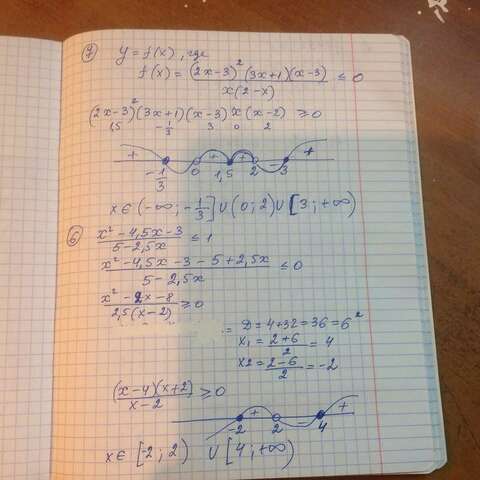 7) y = f(x), где
f(x) = (2x-3)² (3x+1)(x-3) / x(2-x) ≤ 0
(2x-3)² (3x+1)(x-3) x (x-2) ≥ 0
1,5 -1/3 3 0 2
+ - + + - +
-1/3 0 1,5 2 3
x ∈ (-∞; -1/3] ∪ (0; 2) ∪ [3; +∞)
6) x² - 4,5x - 3 / 5 - 2,5x ≤ 1
x² - 4,5x - 3 - 5 + 2,5x / 5 - 2,5x ≤ 0
x² - 2x - 8 / 2,5(x-2) ≥ 0
= D = 4 + 32 = 36 = 6²
x1 = 2+6 / 2 = 4
x2 = 2-6 / 2 = -2
(x-4)(x+2) / x-2 ≥ 0
+ - +
-2 2 4
x ∈ [-2; 2) ∪ [4; +∞)